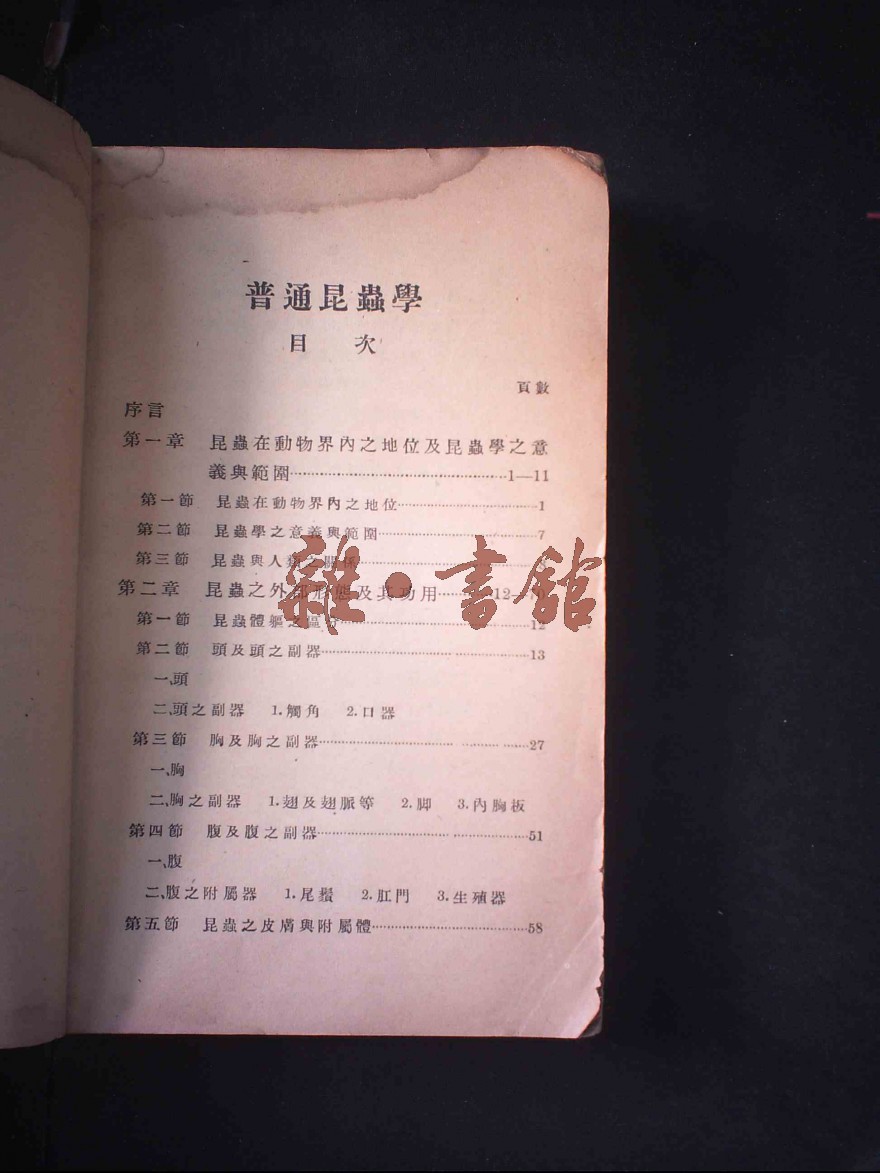 普通昆蟲學
目 次
頁數
序言
第一章 昆蟲在動物界內之地位及昆蟲學之意
義與範圍……1—11
第一節 昆蟲在動物界內之地位……1
第二節 昆蟲學之意義與範圍……7
第三節 昆蟲與人類之關係……
第二章 昆蟲之外部形態及其功用……12—
第一節 昆蟲體軀之區分……12
第二節 頭及頭之副器……13
一、頭
二、頭之副器 1.觸角 2.口器
第三節 胸及胸之副器……27
一、胸
二、胸之副器 1.翅及翅脈等 2.脚 3.內胸板
第四節 腹及腹之副器……51
一、腹
二、腹之附屬器 1.尾鬚 2.肛門 3.生殖器
第五節 昆蟲之皮膚與附屬體……58
雜·書館